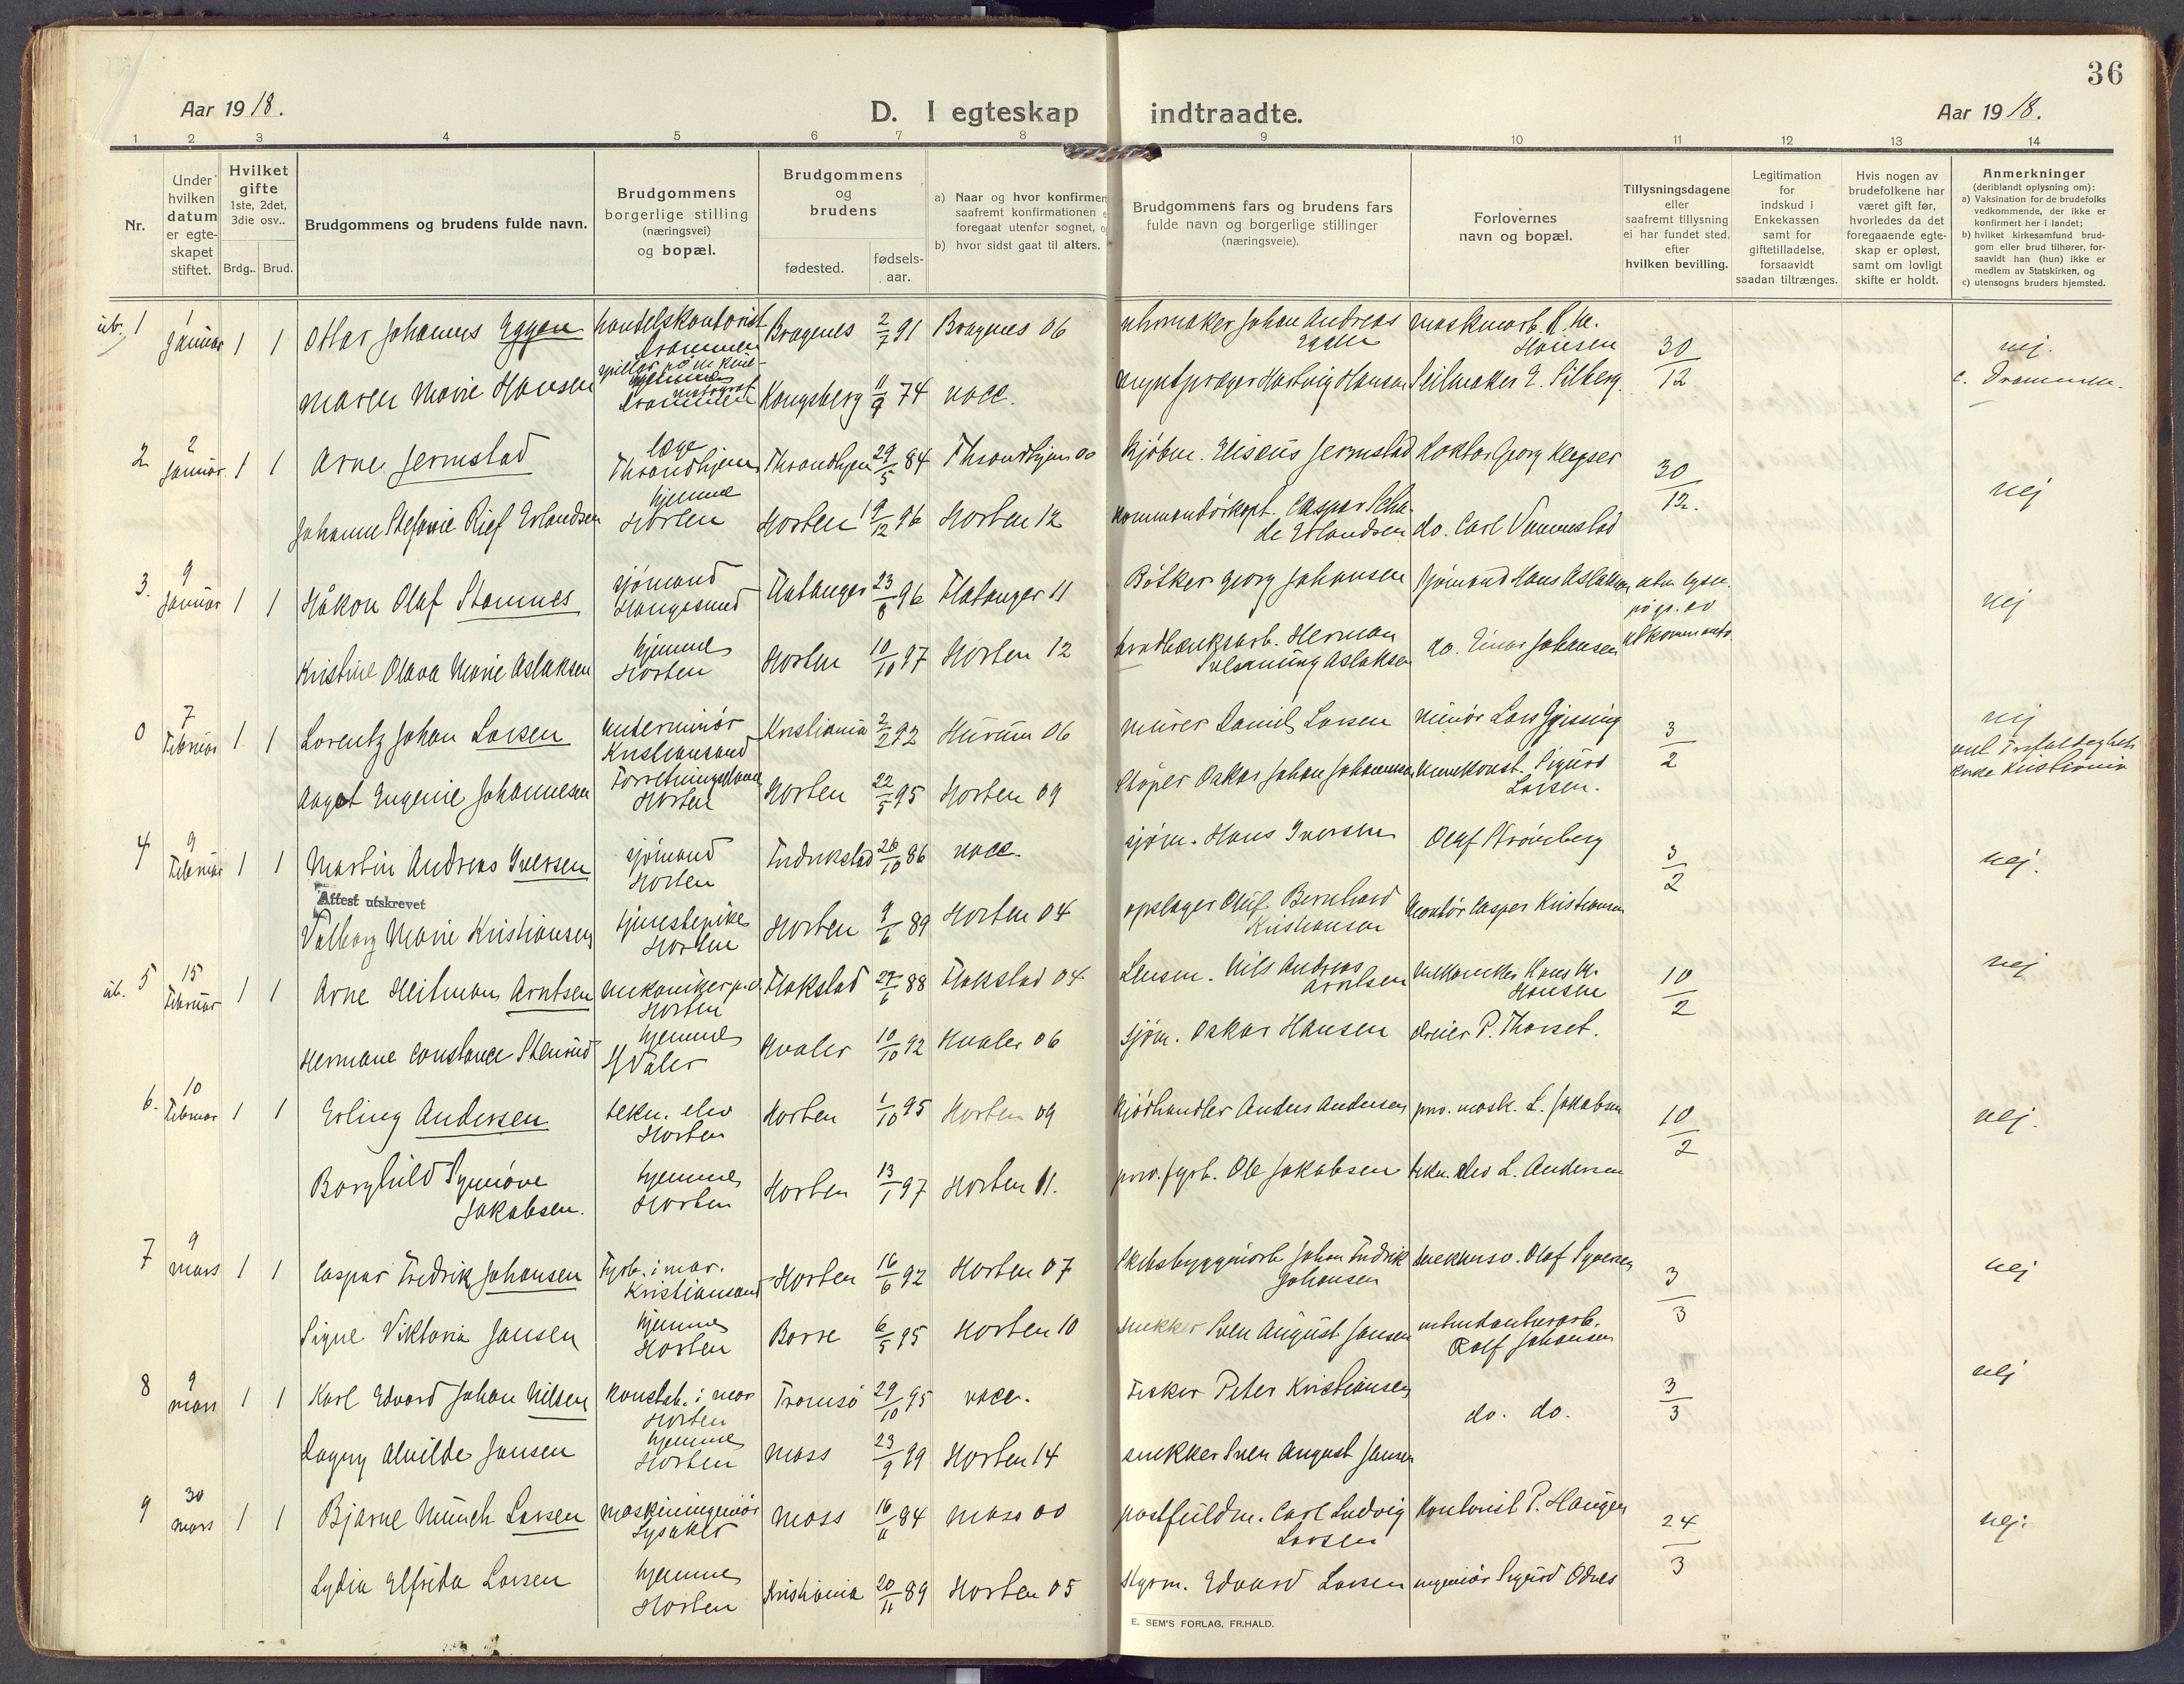 36
Aar 1918.
D. I egteskap indtraadte.
Aar 1918.
1 2 3 4 5 6 7 8 9 10 11 12 13 14
Nr.
Under hvilken datum er egte-skapet stiftet.
Hvilket gifte 1ste, 2det, 3die osv..
Brdg.. Brud.
Brudgommens og brudens fulde navn.
Brudgommens borgerlige stilling (næringsvei) og bopæl.
Brudgommens og brudens
fødested.
fødsels-aar.
a) Naar og hvor konfirmer
saafremt konfirmationen
foregaat utenfor sognet,
b) hvor sidst gaat til alters.
Brudgommens fars og brudens fars
fulde navn og borgerlige stillinger
(næringsveie).
Forlovernes
navn og bopæl.
Tillysningsdagene
eller
saafremt tillysning
ei har fundet sted,
efter
hvilken bevilling.
Legitimation
for
indskud i
Enkekassen
samt for
giftetilladelse,
forsaavidt
saadan tiltrænges.
Hvis nogen av
brudefolkene har
været gift før,
hvorledes da det
foregaaende egte-
skap er opløst,
samt om lovligt
skifte er holdt.
Anmerkninger
(deriblandt oplysning om):
a) Vaksination for de brudefolks
vedkommende, der ikke er
konfirmert her i landet;
b) hvilket kirkesamfund brud-
gom eller brud tilhører, for-
saavidt han (hun) ikke er
medlem av Statskirken, og
c) utensogns bruders hjemsted.
ub. 1 1 Januar 1 1 Ottar Johannes Eggen handelskontorist Drammen Bragenes 2/7 91 Bragenes 06 uhrmaker Johan Andreas Eggen maskinarb. R. M. Hansen 30/12 nej.
Maren Marie Hansen Drammen Kongsberg 11/9 74 vacc. myntpræger Hartvig Hansen Seilmaker E. Silberg. c. Drammen.
2 2 Januar 1 1 Arne Jermstad læge Throndhjem Throndhjem 29/5 84 Throndhjem 00 Kjøbm. Eliseus Jermstad Doktor Georg Keyser 30/12. nej
Johanne Stefanie Rief Erlandsen hjemme Horten Horten 19/12 96 Horten 12 kommandørkapt. Caspar Scha-de Erlandsen do. Carl Vemmestad
3. 9 Januar 1 1 Håkon Olaf Stamnes sjømand Haugesund Flatanger 23/8 96 Flatanger 11 Bøtker Georg Johansen sjømand Hans Aslaksen uten lysn. på gr. av nej
Kristine Olava Marie Aslaksen hjemme Horten Horten 10/10 97 Horten 12 Herman Aslaksen do. Einar Johansen
0 7 Februar 1 1 Lorentz Johan Larsen underminør Kristiansand Kristiania 2/2 92 Hurum 06 murer Daniel Larsen minør Lars Gjessing 3/2 nej
Aagot Eugenie Johannesen Forretningsdame Horten Horten 22/5 95 Horten 09 Støper Oskar Johan Johannesen Sigurd Larsen. Kristiania
4 9 Februar 1 1 Martin Andreas Iversen sjømand Horten Fredrikstad 26/10 86 vacc. sjøm. Hans Iversen Olaf Strömberg 3/2 nej.
Attest utskrevet
Valborg Marie Kristiansen tjenestepike Horten Horten 9/6 89 Horten 04 opslager Oluf Bernhard Kristiansen Casper Kristiansen
ub. 5 15 Februar 1 1 Arne Heitman Arntsen mekaniker Horten Flakstad 27/6 88 Flakstad 04 Lensm. Nils Andreas Arntsen mekaniker Hans M. Hansen 10/2 nej
Hermane Constance Stenrud hjemme Hvaler Hvaler 10/10 92 Hvaler 06 sjøm. Oskar Hansen dreier P. Thorset.
6. 10 Februar 1 1 Erling Andersen tekn. elev Horten Horten 1/10 95 Horten 09 Kjødhandler Anders Andersen L. Jakobsen 10/2 nej.
Borghild Synnøve Jakobsen. hjemme Horten Horten 13/1 97 Horten 11. Ole Jakobsen tekn. elev L. Andersen
7 9 Mars 1 1 Caspar Fredrik Johansen Fyrb. i mar. Kristiansand Horten 16/6 92 Horten 07 Johan Fredrik Johansen Olaf Syversen 3/3 nej
Signe Viktoria Jansen hjemme Horten Borre 6/5 95 Horten 10 snekker Sven August Jansen Rolf Johansen
8 9 mars 1 1 Karl Edvard Johan Nilsen konstab. i mar Horten Tromsø 29/10 95 vacc. Fisker Peter Kristiansen do. do. 3/3 nej
Dagny Alvilde Jansen hjemme Horten Moss 23/9 99 Horten 14 snekker Sven August Jansen
9 30 mars 1 1 Bjarne Münch Larsen maskiningeniør Lysaker Moss 16/11 84 Moss 00 postfuldm. Carl Ludvig Larsen Kontorist P. Haugen 24/3 nej.
Lydia Elfrida Larsen hjemme Horten Kristiania 20/11 89 Horten 05 styrm. Edvard Larsen ingeniør Sigurd Odnes
E. SEM'S FORLAG, FR.HALD.